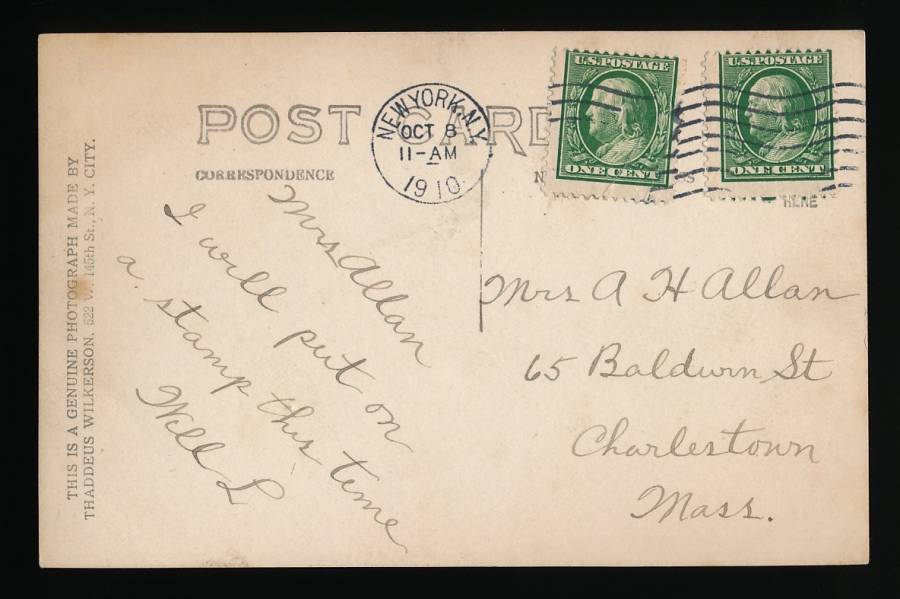 THIS IS A GENUINE PHOTOGRAPH MADE BY
THADDEUS WILKERSON. 522 W. 145th St., N. Y. CITY.
POST CARD
CORRESPONDENCE
NEW YORK, N.Y.
OCT 8
11-AM
1910
U.S. POSTAGE
ONE CENT
U.S. POSTAGE
ONE CENT
HERE
Mrs Allan
I will put on
a stamp this time
Will L
Mrs A H Allan
65 Baldwin St
Charlestown
Mass.